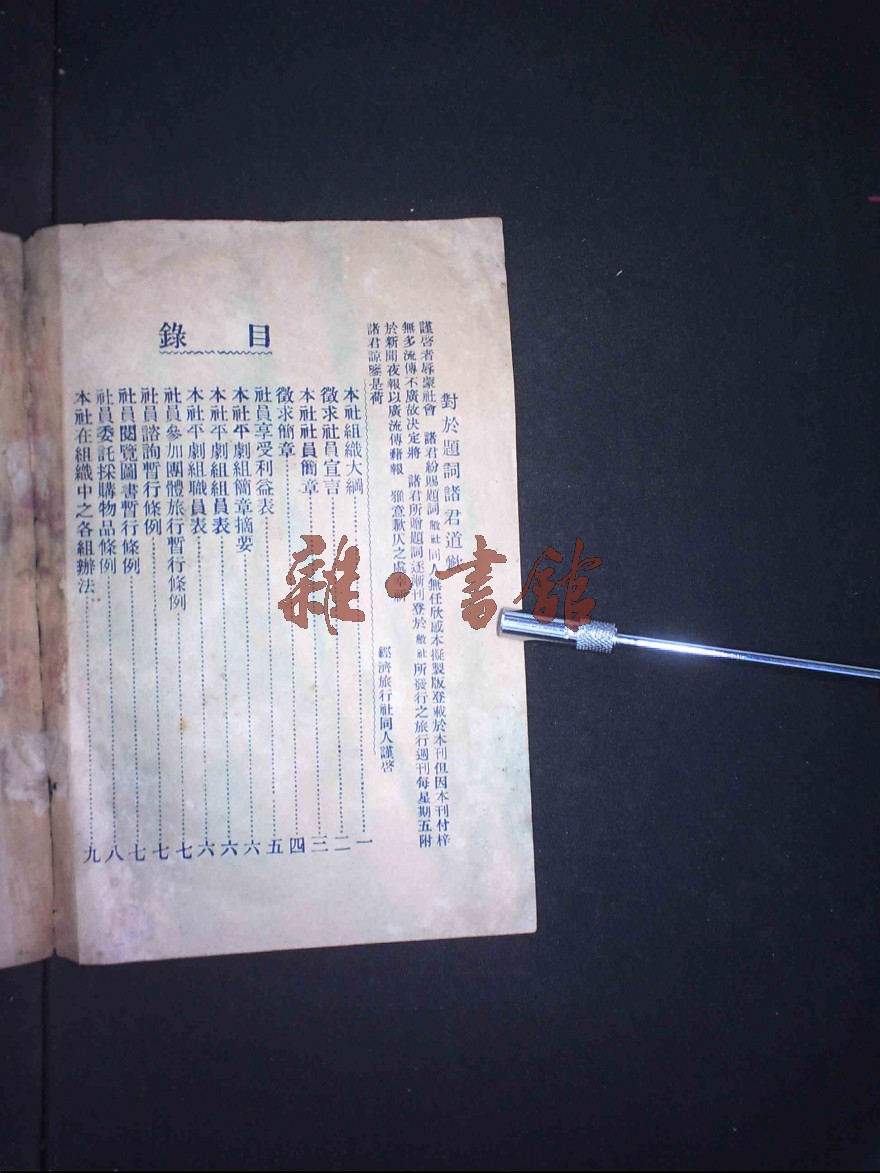 對於題詞諸君道歉
謹啓者辱蒙社會　諸君紛賜題詞敝社同人無任欣感本擬製版登載於本刊但因本刊付梓
無多流傳不廣故決定將　諸君所贈題詞逐漸刊登於敝社所發行之旅行週刊每星期五附
於新聞夜報以廣流傳藉報　雅意歉仄之處
諸君諒鑒是荷
經濟旅行社同人謹啓
目錄
本社組織大綱 一
徵求社員宣言 二
本社社員簡章 三
徵求簡章 四
社員享受利益表 五
本社平劇組簡章摘要 六
本社平劇組組員表 六
本社平劇組職員表 六
社員參加團體旅行暫行條例 七
社員諮詢暫行條例 七
社員閱覽圖書暫行條例 七
社員委託採購物品條例 八
本社在組織中之各組辦法 九
雜·書館